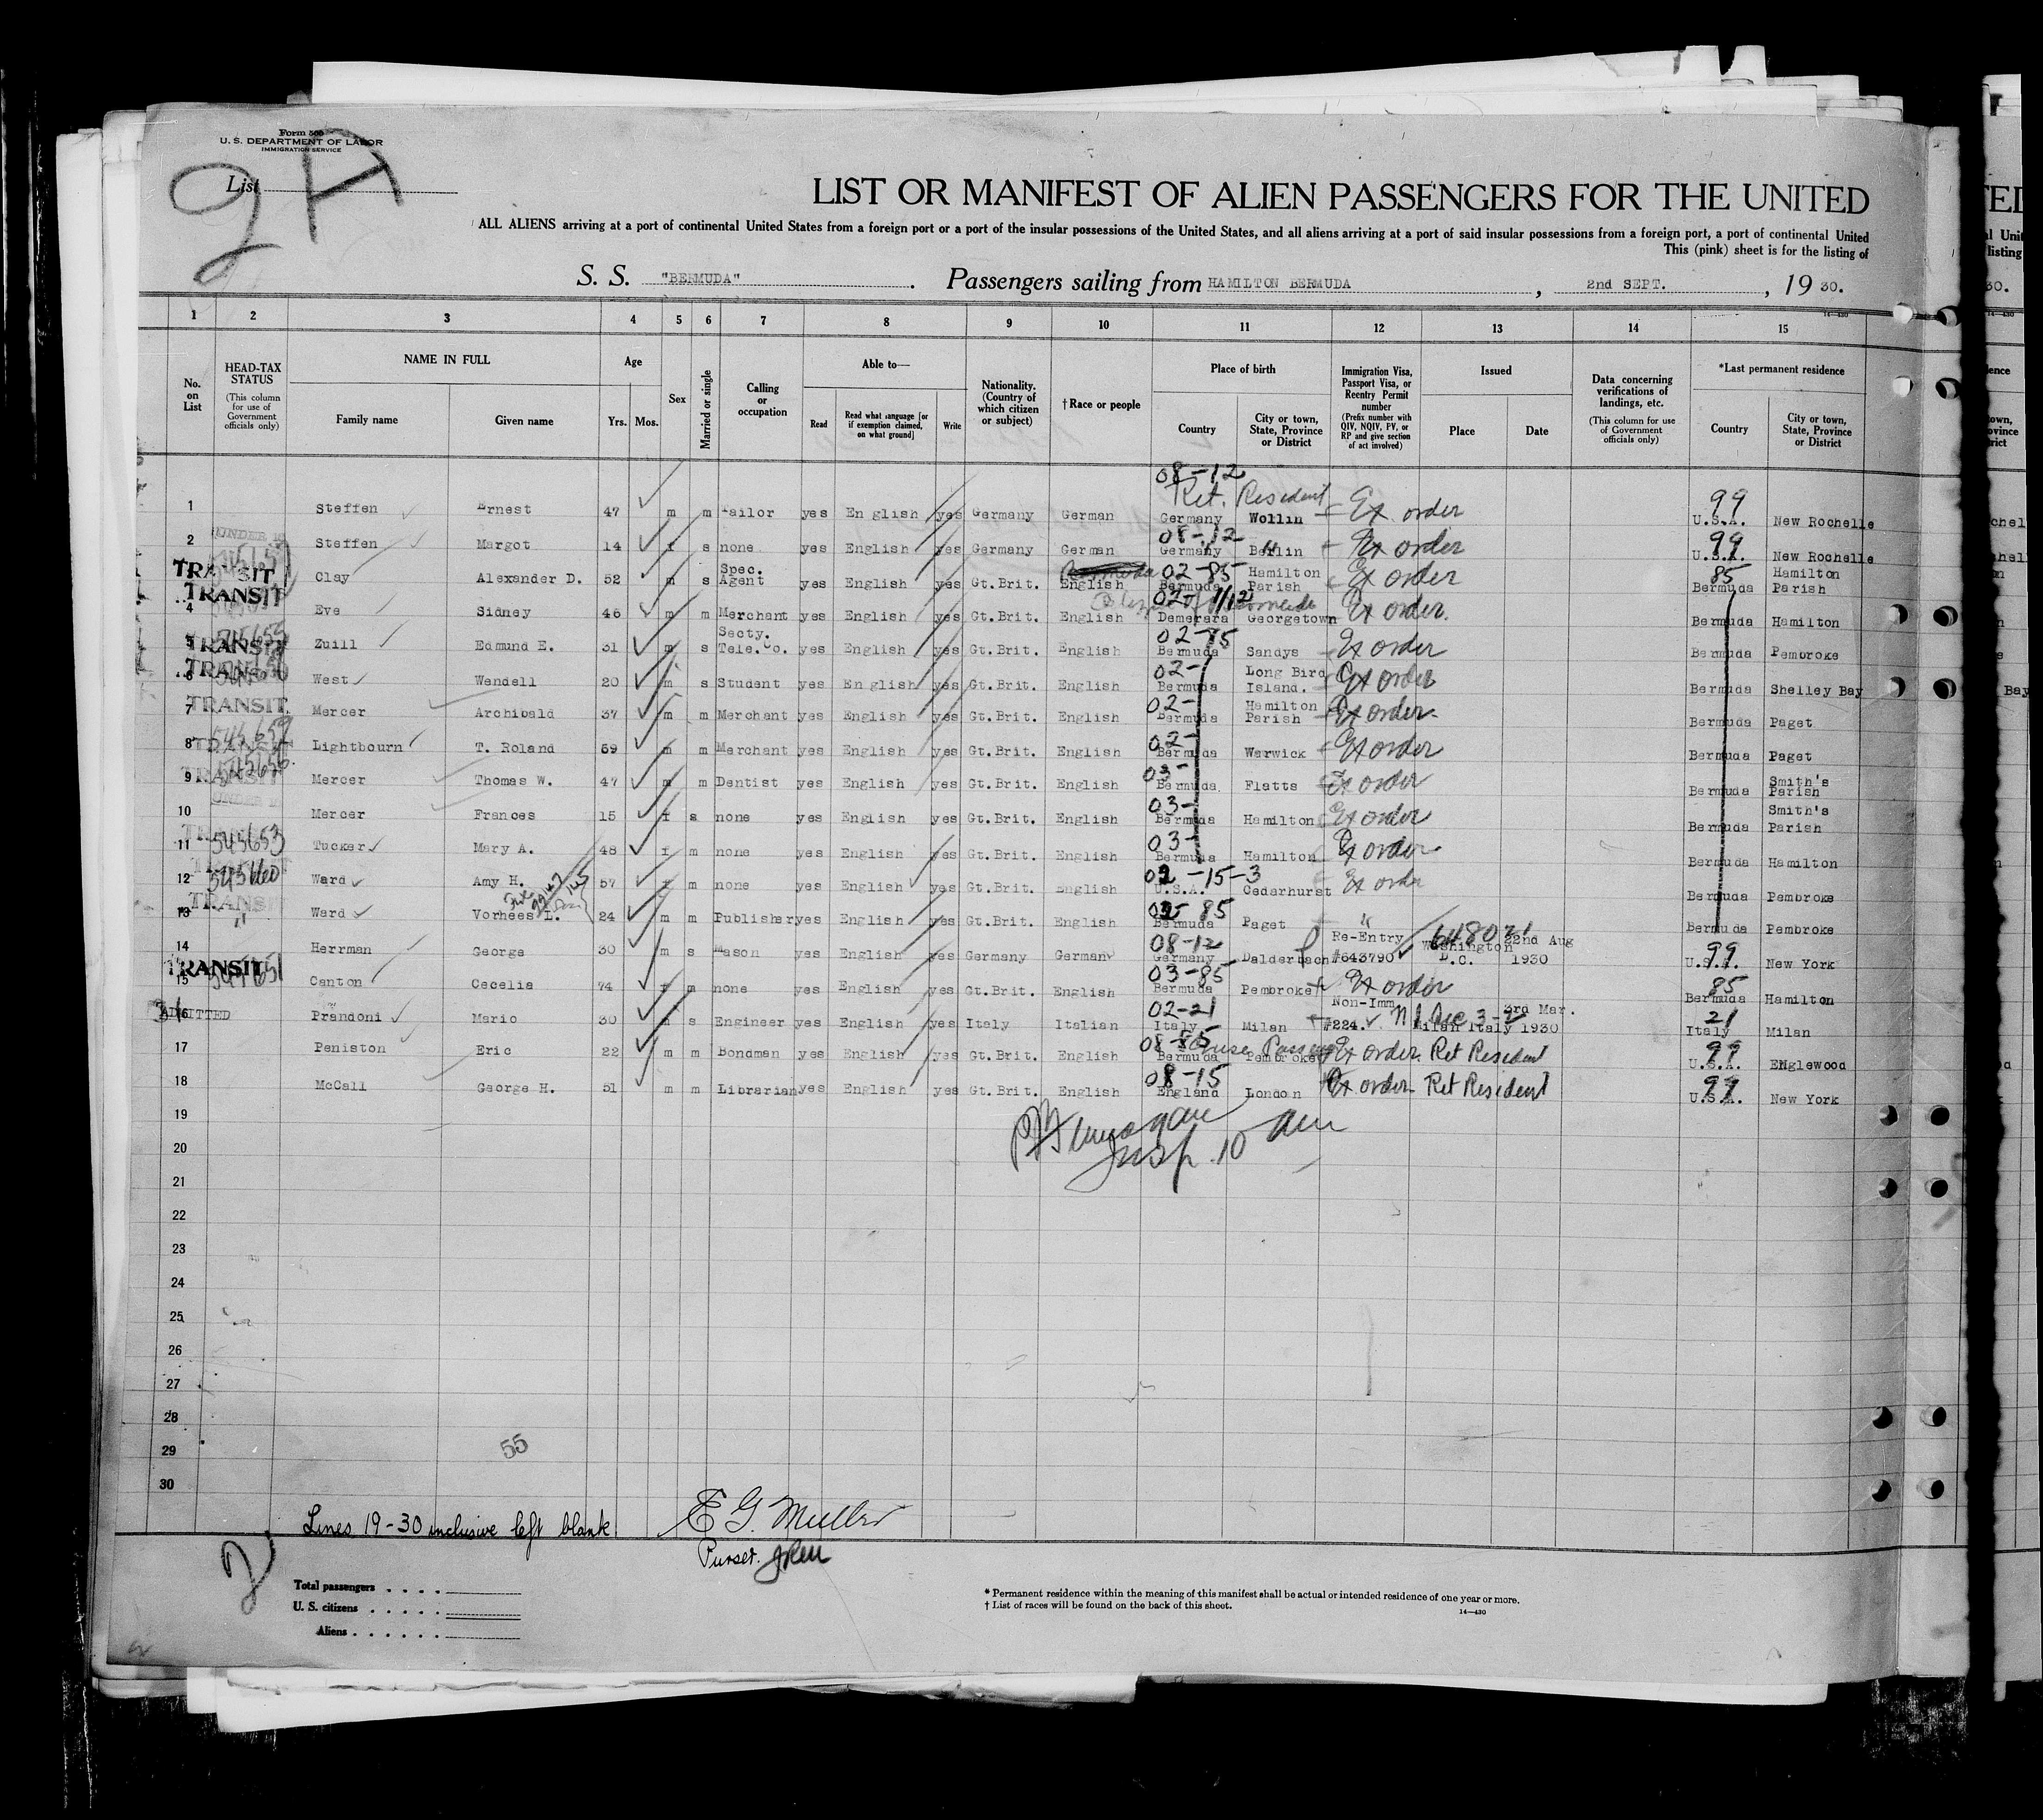 Form 500
U. S. DEPARTMENT OF LABOR
IMMIGRATION SERVICE
List
2 A
LIST OR MANIFEST OF ALIEN PASSENGERS FOR THE UNITED
ALL ALIENS arriving at a port of continental United States from a foreign port or a port of the insular possessions of the United States, and all aliens arriving at a port of said insular possessions from a foreign port, a port of continental United
This (pink) sheet is for the listing of
S. S. "BERMUDA". Passengers sailing from HAMILTON BERMUDA, 2nd SEPT., 19 30.
1 2 3 4 5 6 7 8 9 10 11 12 13 14 15
No. on List
HEAD-TAX STATUS (This column for use of Government officials only)
NAME IN FULL Family name Given name
Age Yrs. Mos.
Sex
Married or single
Calling or occupation
Able to— Read Read what language [or if exemption claimed, on what ground] Write
Nationality. (Country of which citizen or subject)
† Race or people
Place of birth Country City or town, State, Province or District
Immigration Visa, Passport Visa, or Reentry Permit number (Prefix number with QIV, NQIV, PV, or RP and give section of act involved)
Issued Place Date
Data concerning verifications of landings, etc. (This column for use of Government officials only)
*Last permanent residence Country City or town, State, Province or District
08-12 Ret. Resident 99
1 Steffen Ernest 47 m m Tailor yes English yes Germany German Germany Wollin Ex order U.S.A. New Rochelle
UNDER 16 08-12 99
2 Steffen Margot 14 f s none yes English yes Germany German Germany Berlin Ex order U.S.A. New Rochelle
TRANSIT Clay Alexander D. 52 m s Spec. Agent yes English yes Gt.Brit. English 02-85 Bermuda Hamilton Parish Ex order 85 Bermuda Hamilton Parish
TRANSIT 4 Eve Sidney 46 m m Merchant yes English yes Gt.Brit. English Demerara Georgetown Ex order. Bermuda Hamilton
TRANSIT 5 Zuill Edmund E. 31 m s Secty. Tele. Co. yes English yes Gt.Brit. English 02-85 Bermuda Sandys Ex order Bermuda Pembroke
TRANSIT 6 West Wendell 20 m s Student yes English yes Gt.Brit. English 02- Bermuda Long Bird Island. Ex order Bermuda Shelley Bay
TRANSIT 7 Mercer Archibald 37 m m Merchant yes English yes Gt.Brit. English 02- Bermuda Hamilton Parish Ex order. Bermuda Paget
545659
8 Lightbourn T. Roland 59 m m Merchant yes English yes Gt.Brit. English 02- Bermuda Warwick Ex order Bermuda Paget
545656
TRANSIT 9 Mercer Thomas W. 47 m m Dentist yes English yes Gt.Brit. English 03- Bermuda Flatts Ex order Bermuda Smith's Parish
10 Mercer Frances 15 f s none yes English yes Gt.Brit. English 03- Bermuda Hamilton Ex order Bermuda Smith's Parish
545653
11 Tucker Mary A. 48 f m none yes English yes Gt.Brit. English 03- Bermuda Hamilton Ex order Bermuda Hamilton
545660
12 Ward Amy H. 57 f m none yes English yes Gt.Brit. English 02-15-3 U.S.A. Cedarhurst Ex order Bermuda Pembroke
TRANSIT 13 " Ward Vorhees L. 24 m m Publisher yes English yes Gt.Brit. English 85 Bermuda Paget " Bermuda Pembroke
14 Herrman George 30 m s Mason yes English yes Germany German 08-12 Germany Dalderbach Re-Entry #643790 Washington D.C. 22nd Aug 1930 99 U.S.A. New York
TRANSIT 15 Canton Cecelia 74 f m none yes English yes Gt.Brit. English 03-85 Bermuda Pembroke Ex order 85 Bermuda Hamilton
ADMITTED 16 Prandoni Mario 30 m s Engineer yes English yes Italy Italian 02-21 Italy Milan Non-Imm #224. Milan Italy 3rd Mar. 1930 21 Italy Milan
17 Peniston Eric 22 m m Bondman yes English yes Gt.Brit. English 08-85 Bermuda Pembroke Ex order. Ret Resident 99 U.S.A. Englewood
18 McCall George H. 51 m m Librarian yes English yes Gt.Brit. English 08-15 England London Ex order. Ret Resident 99 U.S.A. New York
19
20
Insp. 10 am
21
22
23
24
25
26
27
28
29
55
30
Lines 19-30 inclusive left blank. E G. Muller
Purser.
2
Total passengers
U. S. citizens
Aliens
* Permanent residence within the meaning of this manifest shall be actual or intended residence of one year or more.
† List of races will be found on the back of this sheet.
14—430